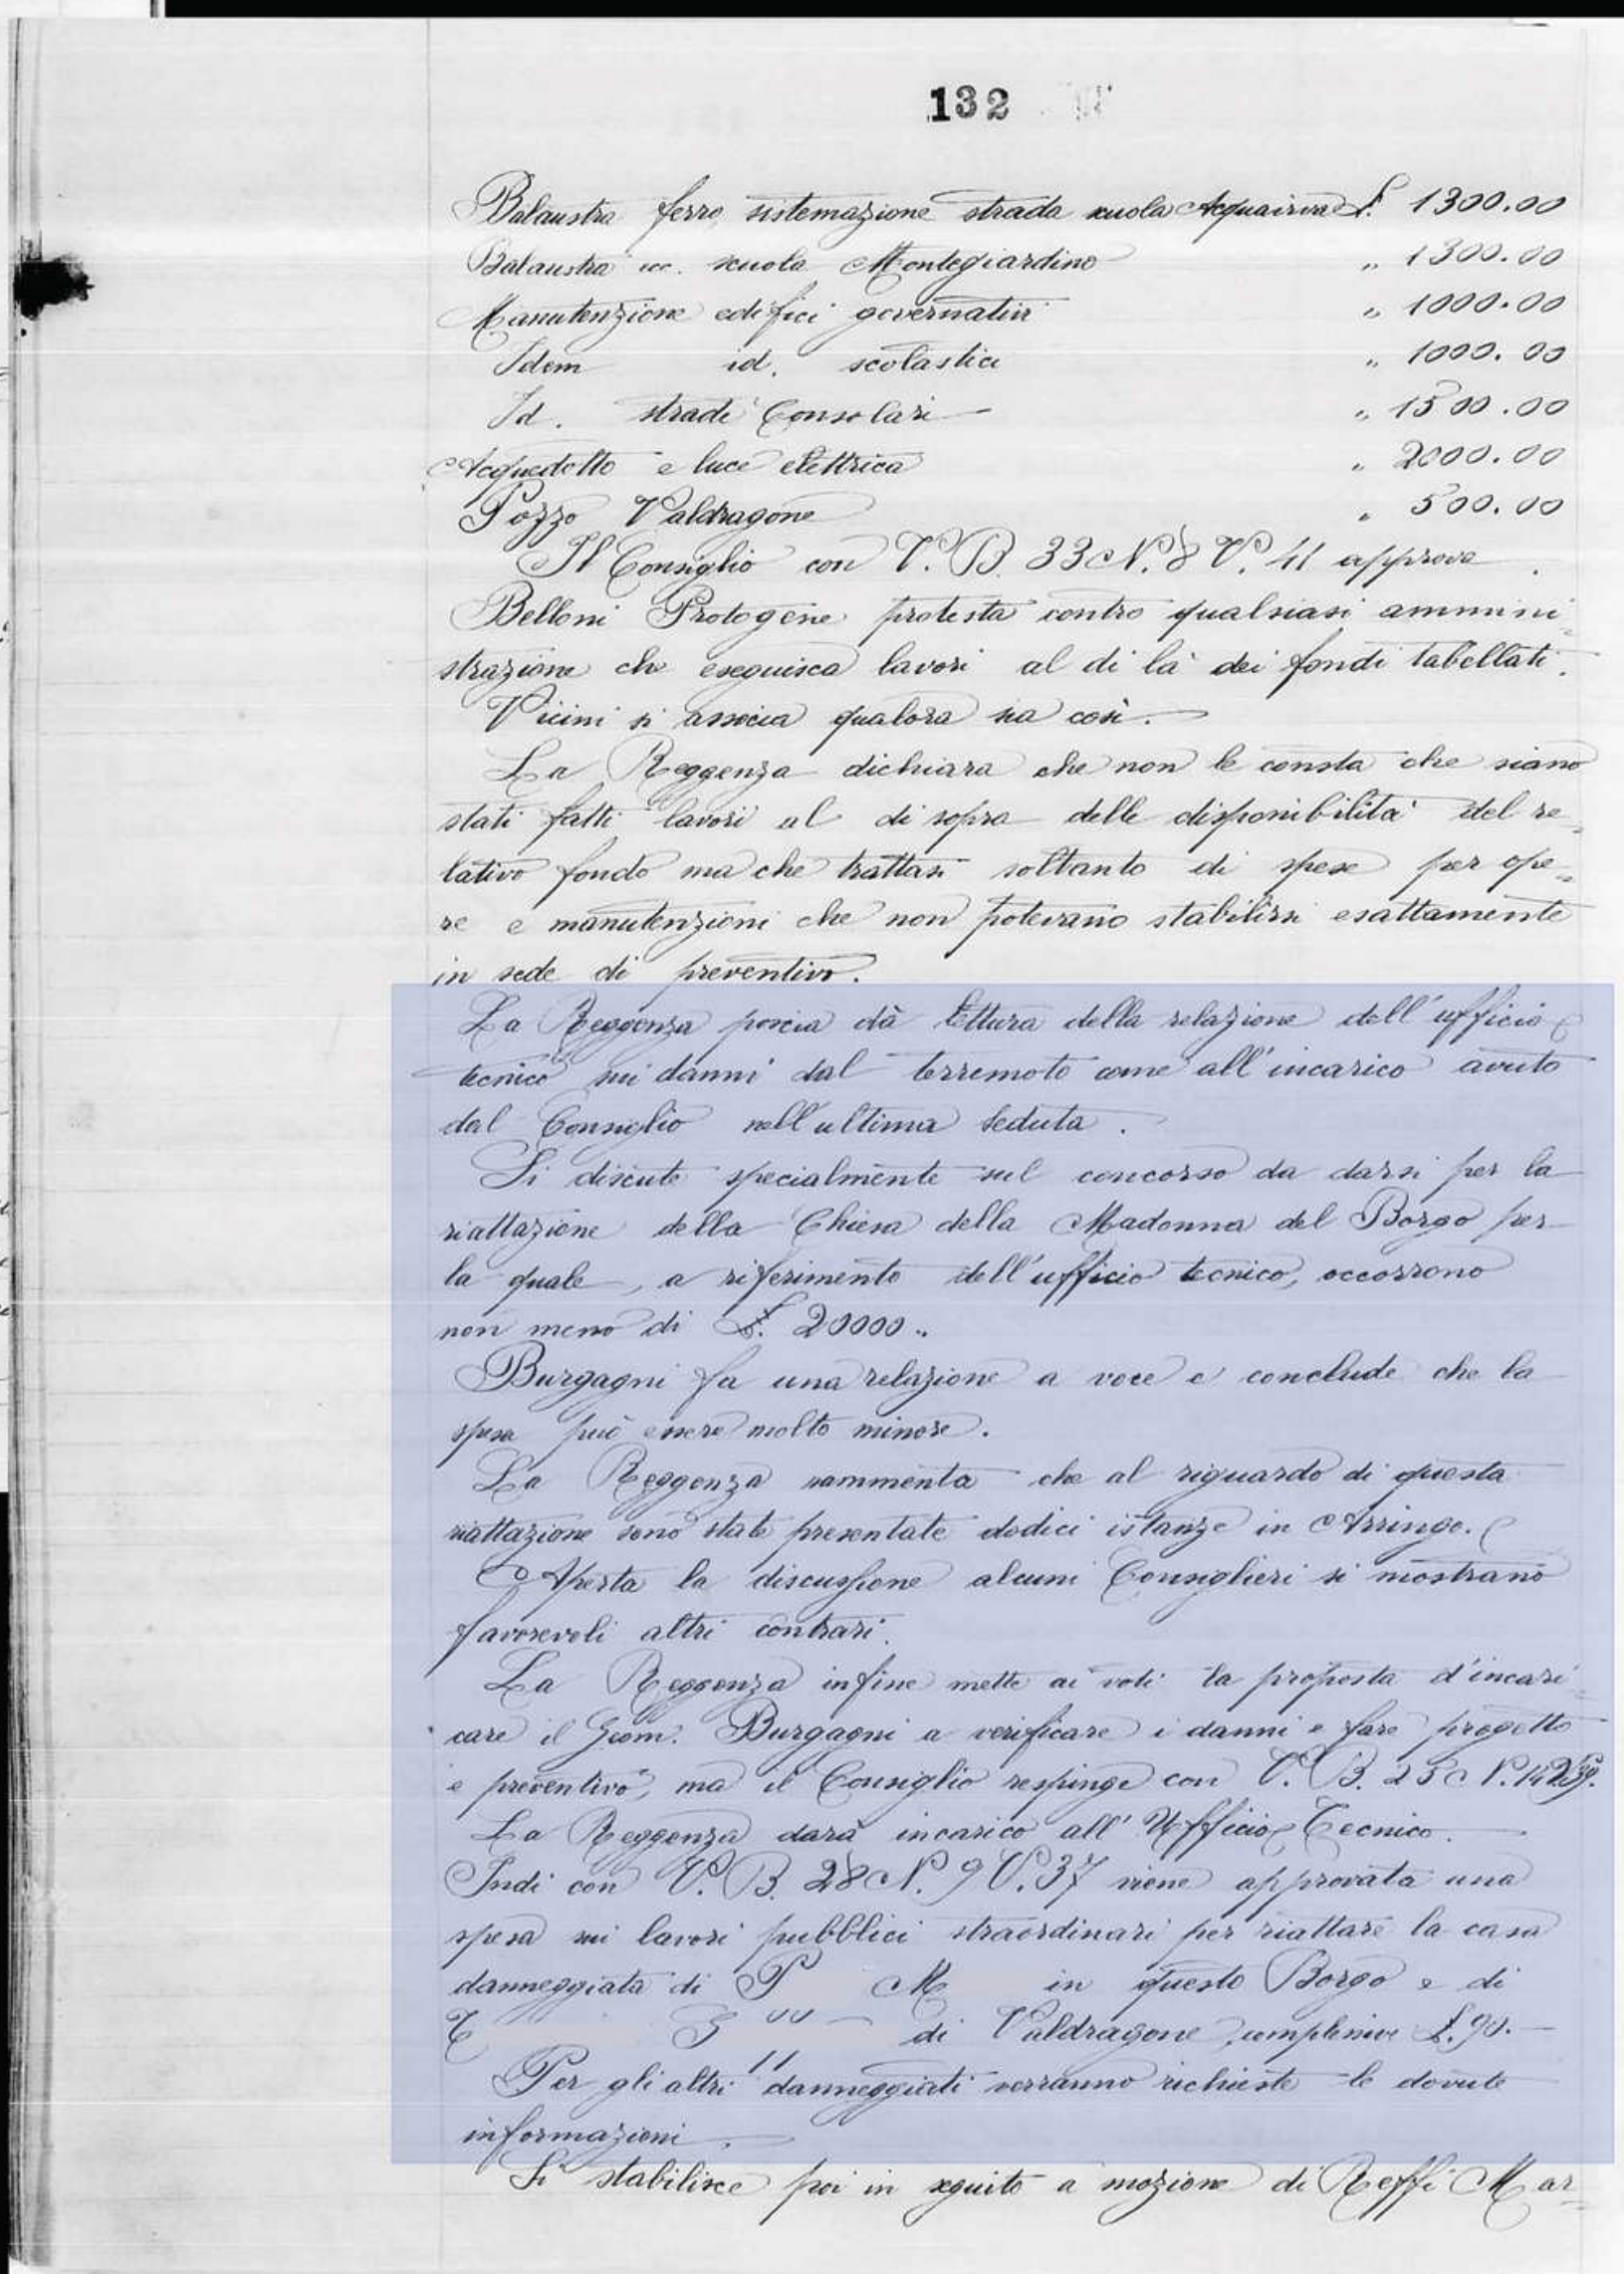 132
Balaustra ferro, sistemazione strada scuola Acquaviva £. 1300.00
Balaustra ecc. scuola Montegiardino „ 1300.00
Manutenzione edifici governativi „ 1000.00
Idem id. scolastici „ 1000.00
Id. strade Consolari — „ 1500.00
Acquedotto e luce elettrica „ 2000.00
Pozzo Valdragone „ 500.00
Il Consiglio con V. B. 33 N. 8 V. 41 approva.
Belloni Protogene protesta contro qualsiasi ammini=
strazione che eseguisca lavori al di là dei fondi tabellati.
Vicini si associa qualora sia così. —
La Reggenza dichiara che non le consta che siano
stati fatti lavori al di sopra delle disponibilità del re=
lativo fondo ma che trattasi soltanto di spese per ope=
re e manutenzioni che non potevano stabilirsi esattamente
in sede di preventivo.
La Reggenza poscia dà lettura della relazione dell'ufficio
tecnico sui danni dal terremoto come all'incarico avuto
dal Consiglio nell'ultima seduta.
Si discute specialmente sul concorso da darsi per la
riattazione della Chiesa della Madonna del Borgo per
la quale, a riferimento dell'ufficio tecnico, occorrono
non meno di £. 20000..
Burgagni fa una relazione a voce e conclude che la
spesa può essere molto minore.
La Reggenza rammenta che al riguardo di questa
riattazione sono state presentate dodici istanze in Arringo.
Aperta la discussione alcuni Consiglieri si mostrano
favorevoli altri contrari.
La Reggenza infine mette ai voti la proposta d'incari=
care il Geom. Burgagni a verificare i danni e fare progetto
e preventivo, ma il Consiglio respinge con V. B. 25 N. 14
La Reggenza darà incarico all'Ufficio Tecnico. —
Indi con V. B. 28 N. 9 V. 37 viene approvata una
spesa sui lavori pubblici straordinari per riattare la casa
danneggiata di P M in questo Borgo e di
T G di Valdragone, complessive £. 90. —
Per gli altri danneggiati verranno richieste le dovute
informazioni. —
Si stabilisce poi in seguito a mozione di Reffi Mar=